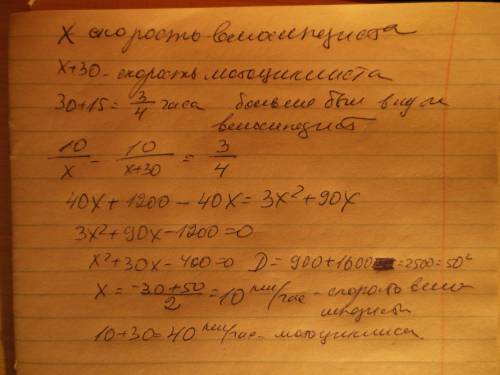 X скорость велосипедиста
x+30 - скорость мотоциклиста
30+15 = 3/4 часа больше был в пути
велосипедист
10/x - 10/(x+30) = 3/4
40x + 1200 - 40x = 3x² + 90x
3x² + 90x - 1200 = 0
x² + 30x - 400 = 0 D = 900 + 1600 = 2500 = 50²
x = (-30+50)/2 = 10 км/час - скорость вело
сипедиста
10+30 = 40 км/час - мотоциклиста.